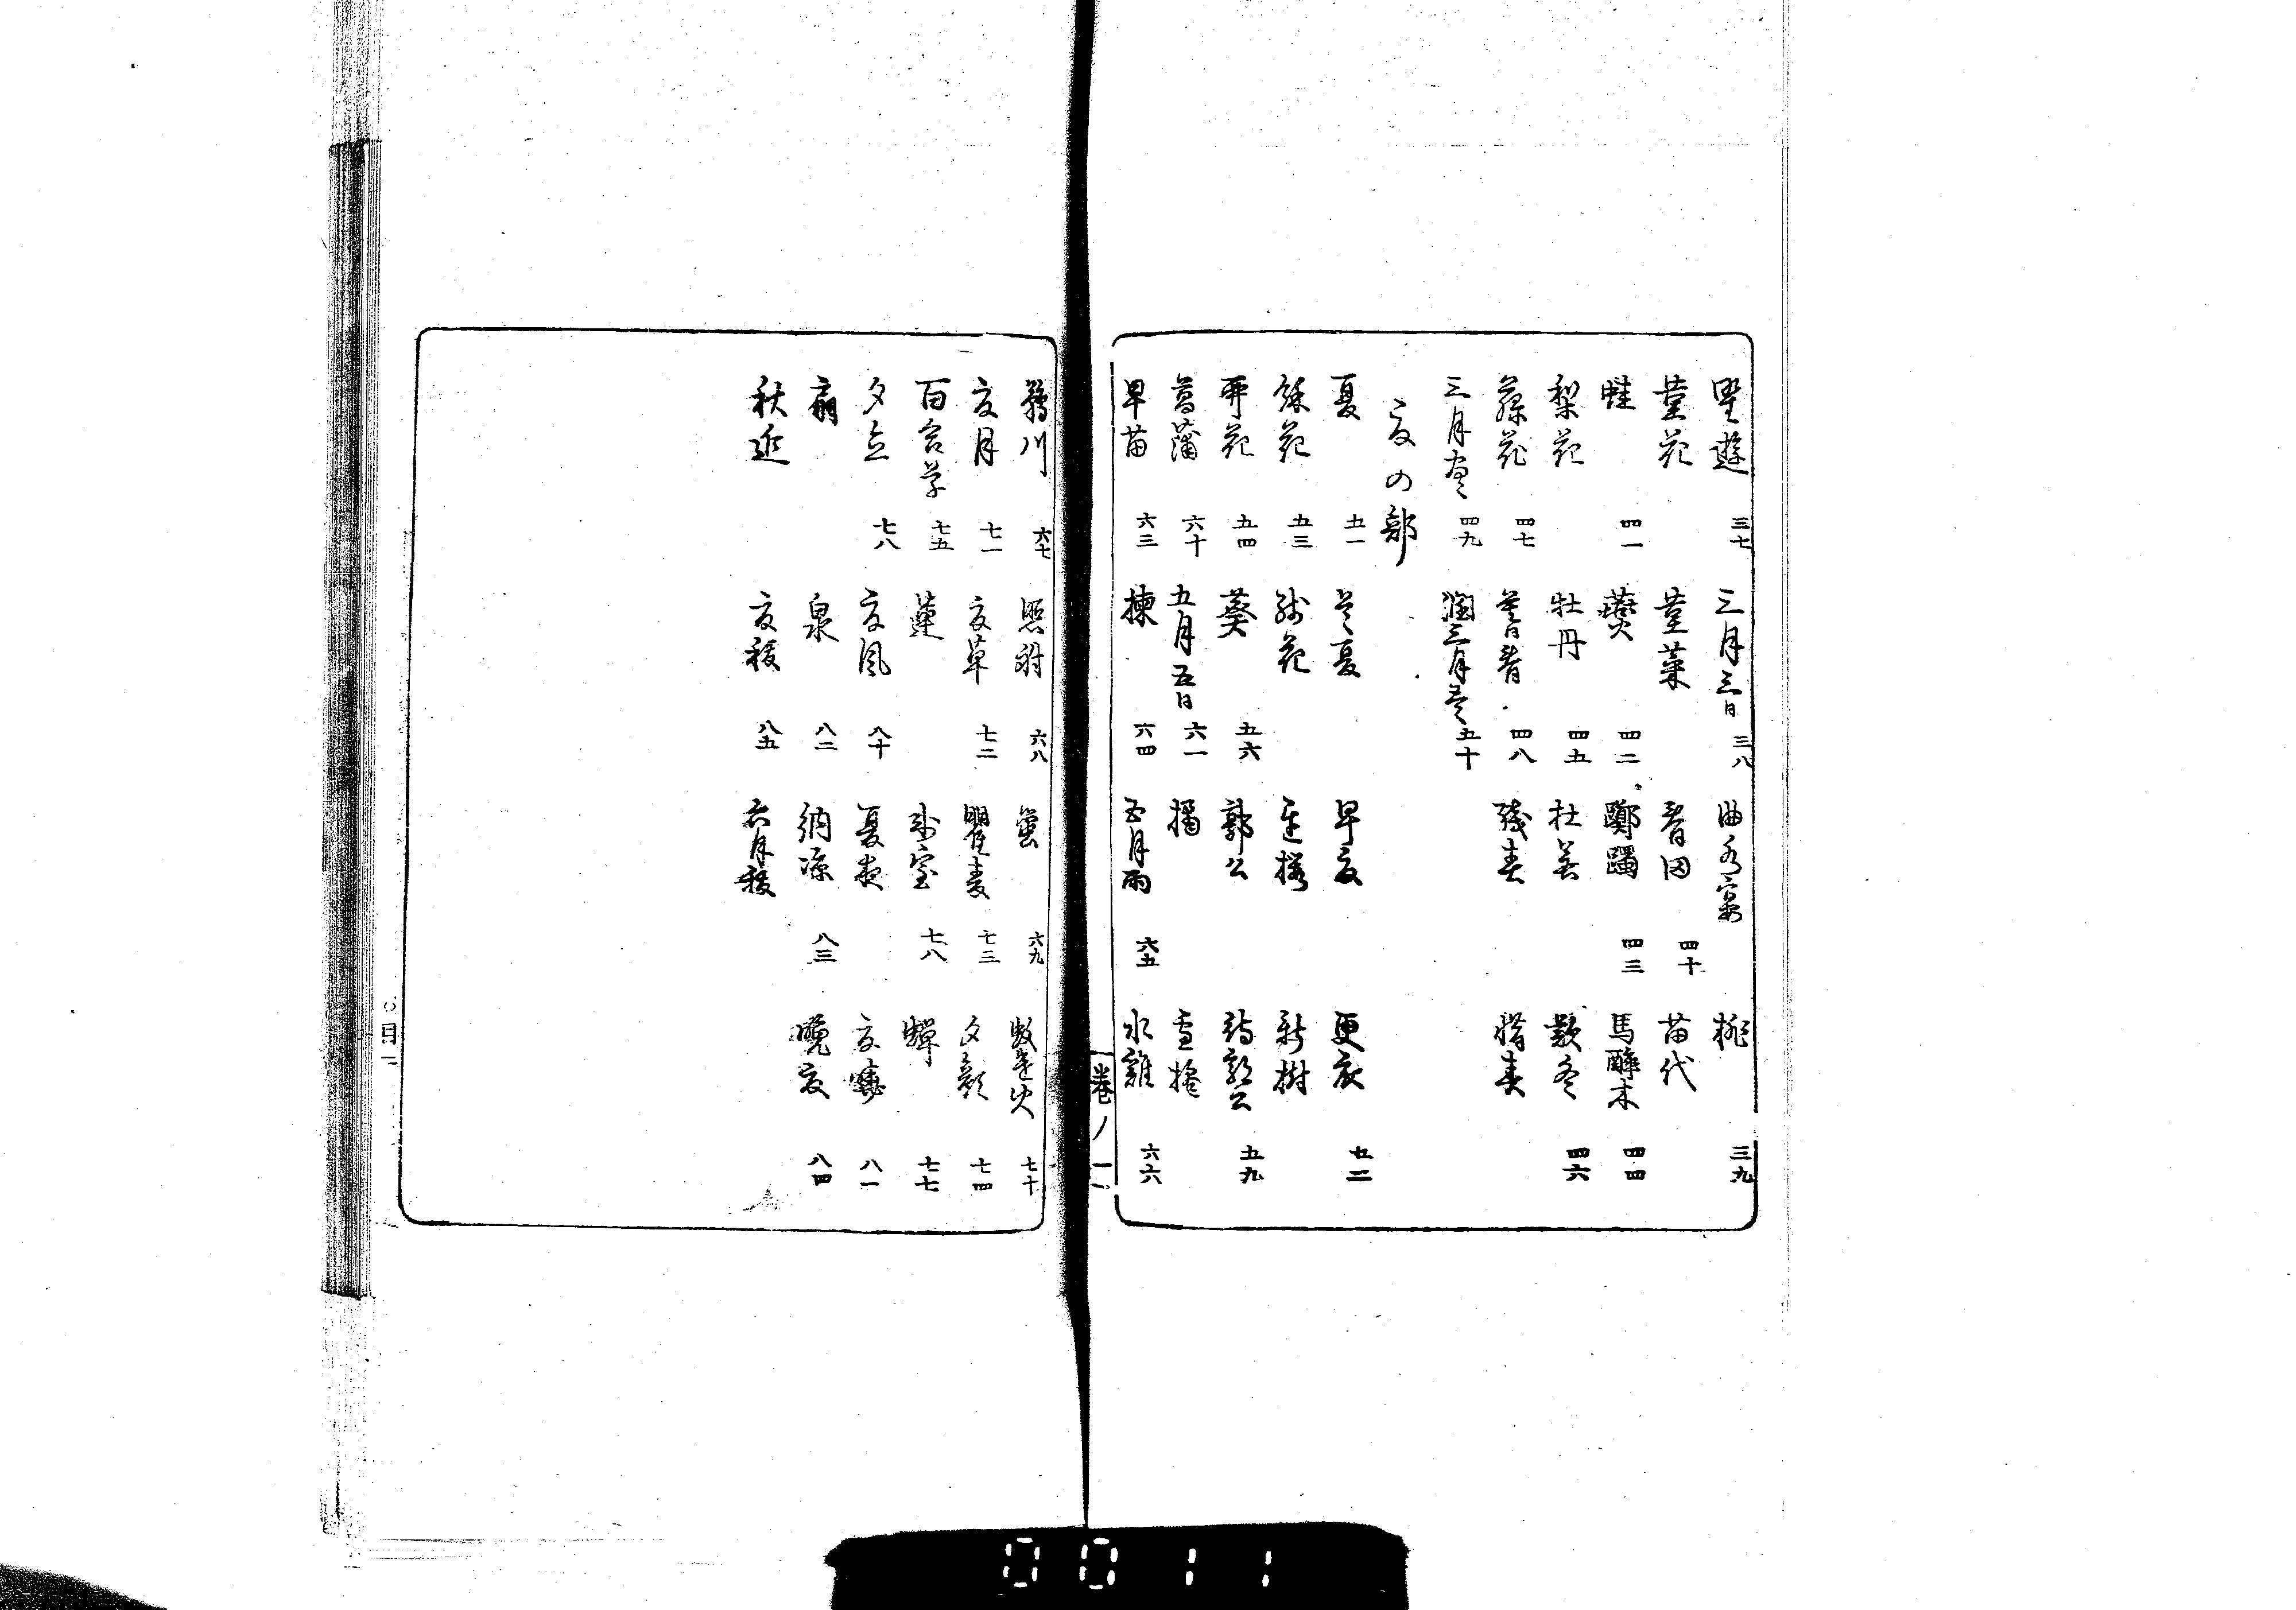 野遊 三七 三月三日 三八 曲水宴 桃 三九
菫花 菫菜 春田 四十 苗代
蛙 四一 蕨 四二 躑躅 四三 馬酔木 四四
梨花 牡丹 四五 杜若 款冬 四六
藤花 四七 暮春 四八 残春 惜春
三月尽 四九 閏三月尽 五十
夏の部
夏 五一 首夏 早夏 更衣 五二
餘花 五三 残花 遅桜 新樹
卯花 五四 葵 五六 郭公 待郭公 五九
菖蒲 六十 五月五日 六一 橘 盧橘
早苗 六三 楝 六四 五月雨 六五 水鶏 六六
巻ノ一
鵜川 六七 照射 六八 蛍 六九 蚊遣火 七十
夏月 七一 夏草 七二 瞿麦 七三 夕顔 七四
百合草 七五 蓮 氷室 七八 蝉 七七
夕立 七八 夏風 八十 夏夜 夏 八一
扇 泉 八二 納凉 八三 晩夏 八四
秋近 夏祓 八五 六月祓
目二
0011